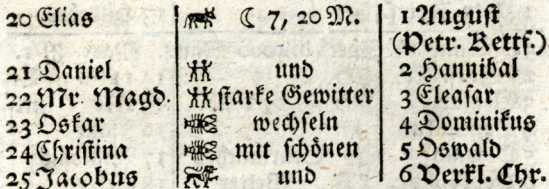 20 Elias ☾ 7, 20 M. 1 August
(Petr. Kettf.)
21 Daniel und 2 Hannibal
22 Mr. Magd. starke Gewitter 3 Eleasar
23 Oskar wechseln 4 Dominikus
24 Christina mit schönen 5 Oswald
25 Jacobus und 6 Verkl. Chr.